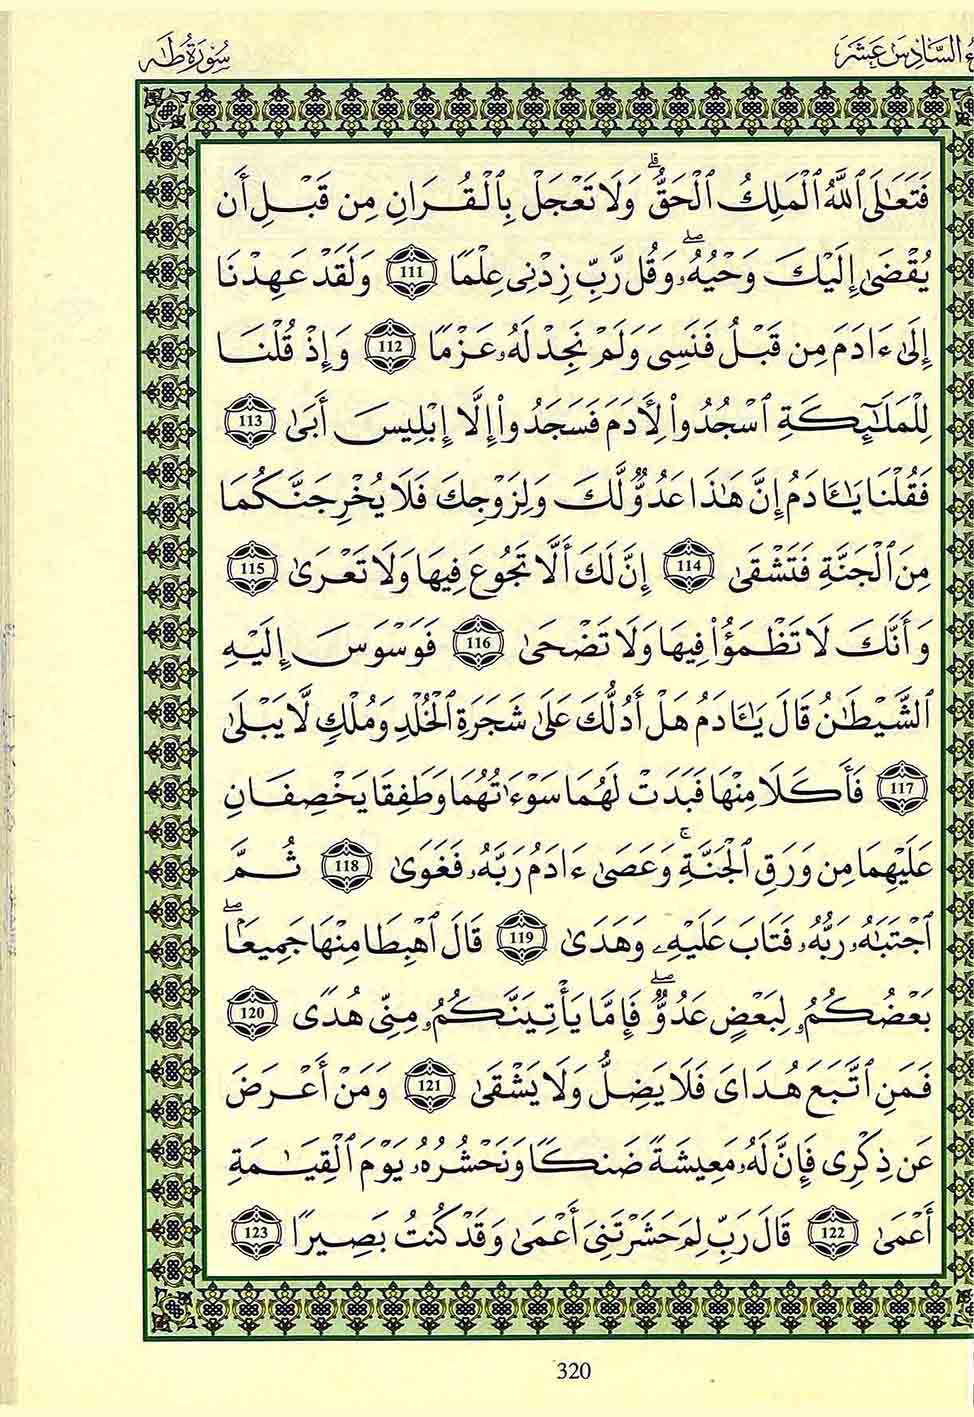 السَّادِسَ عَشَرَ
سُورَةُ طَهَ
فَتَعَٰلَى ٱللَّهُ ٱلْمَلِكُ ٱلْحَقُّ ۗ وَلَا تَعْجَلْ بِالْقُرَانِ مِن قَبْلِ أَن
يُقْضَىٰ إِلَيْكَ وَحْيُهُۥ ۖ وَقُل رَّبِّ زِدْنِى عِلْمًا 111 وَلَقَدْ عَهِدْنَا
إِلَىٰ ءَادَمَ مِن قَبْلُ فَنَسِىَ وَلَمْ نَجِدْ لَهُۥ عَزْمًا 112 وَإِذْ قُلْنَا
لِلْمَلَٰٓئِكَةِ ٱسْجُدُوا۟ لِأَدَمَ فَسَجَدُوٓا۟ إِلَّا إِبْلِيسَ أَبَىٰ 113
فَقُلْنَا يَٰـَٔادَمُ إِنَّ هَٰذَا عَدُوٌّ لَّكَ وَلِزَوْجِكَ فَلَا يُخْرِجَنَّكُمَا
مِنَ ٱلْجَنَّةِ فَتَشْقَىٰ 114 إِنَّ لَكَ أَلَّا تَجُوعَ فِيهَا وَلَا تَعْرَىٰ 115
وَأَنَّكَ لَا تَظْمَؤُا۟ فِيهَا وَلَا تَضْحَىٰ 116 فَوَسْوَسَ إِلَيْهِ
ٱلشَّيْطَٰنُ قَالَ يَٰـَٔادَمُ هَلْ أَدُلُّكَ عَلَىٰ شَجَرَةِ ٱلْخُلْدِ وَمُلْكٍ لَّا يَبْلَىٰ
117 فَأَكَلَا مِنْهَا فَبَدَتْ لَهُمَا سَوْءَٰتُهُمَا وَطَفِقَا يَخْصِفَانِ
عَلَيْهِمَا مِن وَرَقِ ٱلْجَنَّةِ ۚ وَعَصَىٰ ءَادَمُ رَبَّهُۥ فَغَوَىٰ 118 ثُمَّ
ٱجْتَبَٰهُۥ رَبُّهُۥ فَتَابَ عَلَيْهِۦ وَهَدَىٰ 119 قَالَ ٱهْبِطَا مِنْهَا جَمِيعًا ۖ
بَعْضُكُمُۥ لِبَعْضٍ عَدُوٌّ ۖ فَإِمَّا يَأْتِيَنَّكُمُۥ مِنِّى هُدًى 120
فَمَنِ ٱتَّبَعَ هُدَاىَ فَلَا يَضِلُّ وَلَا يَشْقَىٰ 121 وَمَنْ أَعْرَضَ
عَن ذِكْرِى فَإِنَّ لَهُۥ مَعِيشَةً ضَنكًا وَنَحْشُرُهُۥ يَوْمَ ٱلْقِيَٰمَةِ
أَعْمَىٰ 122 قَالَ رَبِّ لِمَ حَشَرْتَنِىَ أَعْمَىٰ وَقَدْ كُنتُ بَصِيرًا 123
320